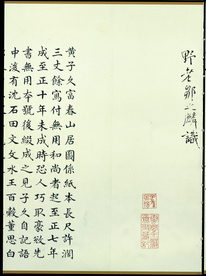 野老鄒之麟識
黃子久富春山居圖係紙本長尺許闊
三丈餘寫付無用和尚者起至正七年
成至正十年未成時忍人巧取豪敓先
書無用本號後綴成之見子久自記語
中後有沈石田文文水王百穀董思白